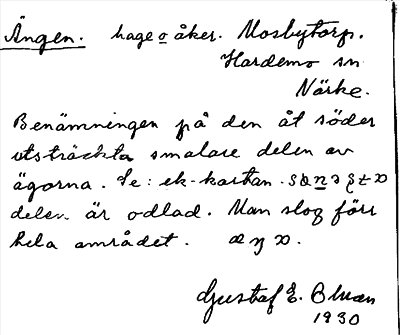 Ängen. hage o åker. Mosbytorp.
Hardemo sn
Närke.
Benämningen på den åt söder
utsträckta smalare delen av
ägorna. Se: ek-kartan.
delen är odlad. Man slog förr
hela området.
Gustaf E. Bluen
1930